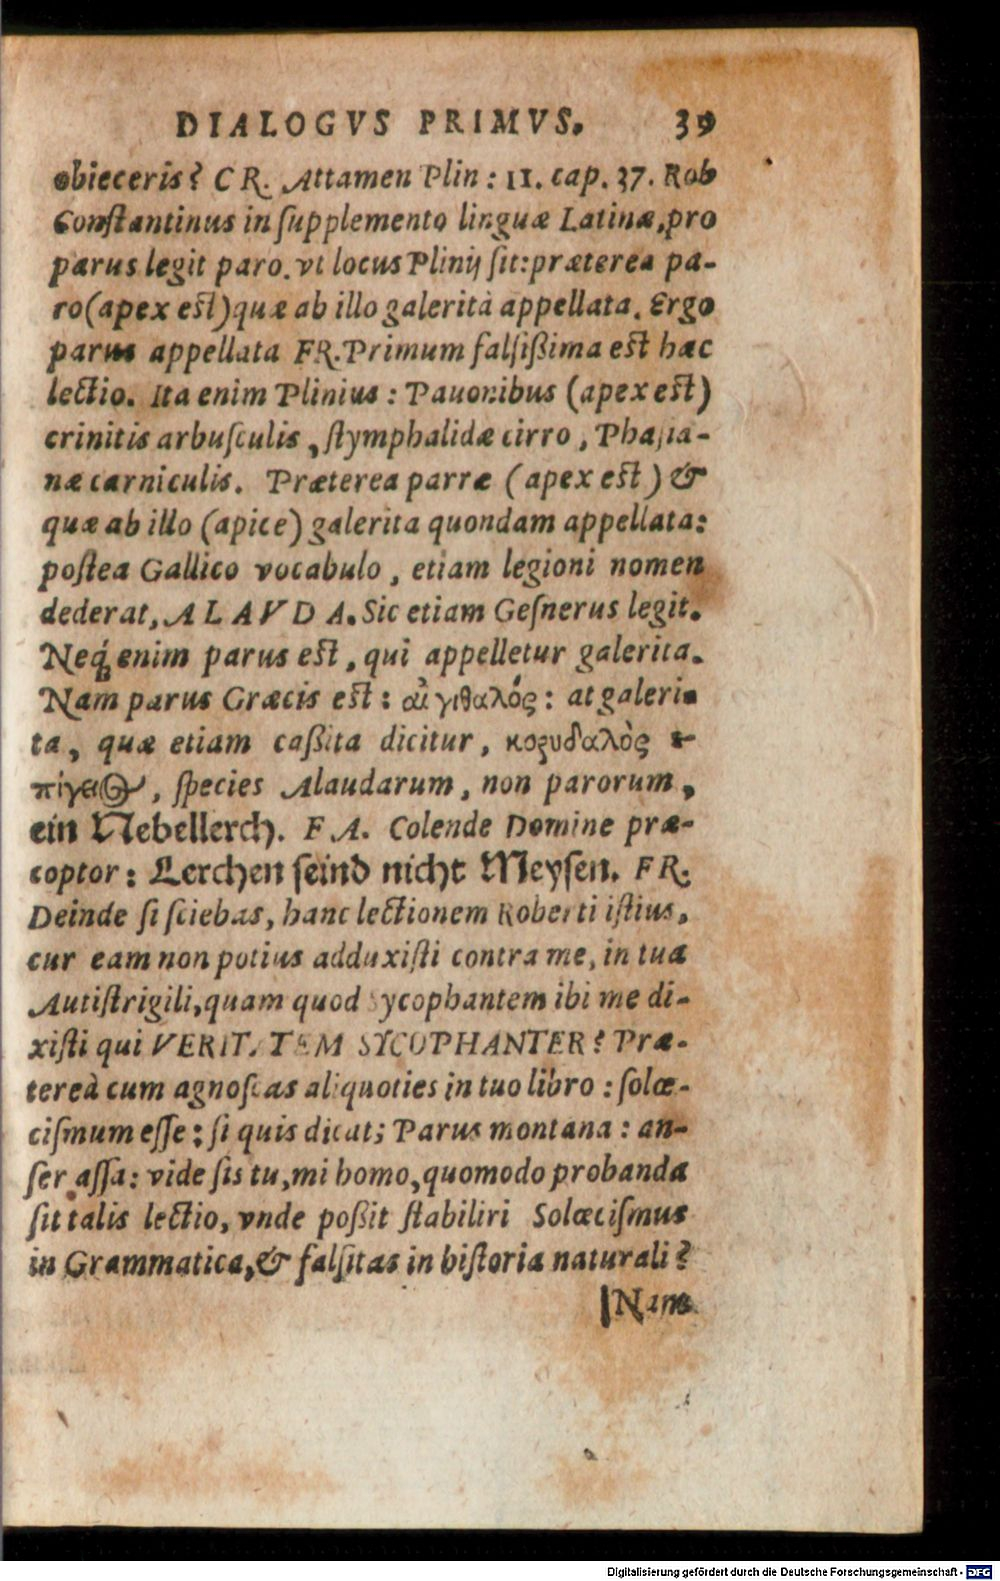 DIALOGVS PRIMVS. 39
obieceris? CR. Attamen Plin: 11. cap. 37. Rob
Constantinus in supplemento linguæ Latinæ, pro
parus legit paro. vt locus Plinij sit: præterea pa-
ro (apex est) quæ ab illo galerita appellata. Ergo
parus appellata FR. Primum falsißima est hæc
lectio. Ita enim Plinius: Pauonibus (apex est)
crinitis arbusculis, stymphalidæ cirro, Phasia-
næ carniculis. Præterea parræ (apex est) &
quæ ab illo (apice) galerita quondam appellata:
postea Gallico vocabulo, etiam legioni nomen
dederat, ALAVDA. Sic etiam Gesnerus legit.
Neq́; enim parus est, qui appelletur galerita.
Nam parus Græcis est: αἰγιθαλός: at galeri-
ta, quæ etiam caßita dicitur, κορυδαλὸς
, species Alaudarum, non parorum,
ein Nebellerch. FA. Colende Domine præ-
coptor: Lerchen seind nicht Meysen. FR.
Deinde si sciebas, hanc lectionem Roberti istius,
cur eam non potius adduxisti contra me, in tua
Autistrigili, quam quod Sycophantem ibi me di-
xisti qui VERITATEM SYCOPHANTER? Præ-
tereà cum agnoscas aliquoties in tuo libro: solœ-
cismum esse: si quis dicat; Parus montana: an-
ser assa: vide sis tu, mi homo, quomodo probanda
sit talis lectio, vnde poßit stabiliri Solœcismus
in Grammatica, & falsitas in historia naturali?
Nam
Digitalisierung gefördert durch die Deutsche Forschungsgemeinschaft - DFG